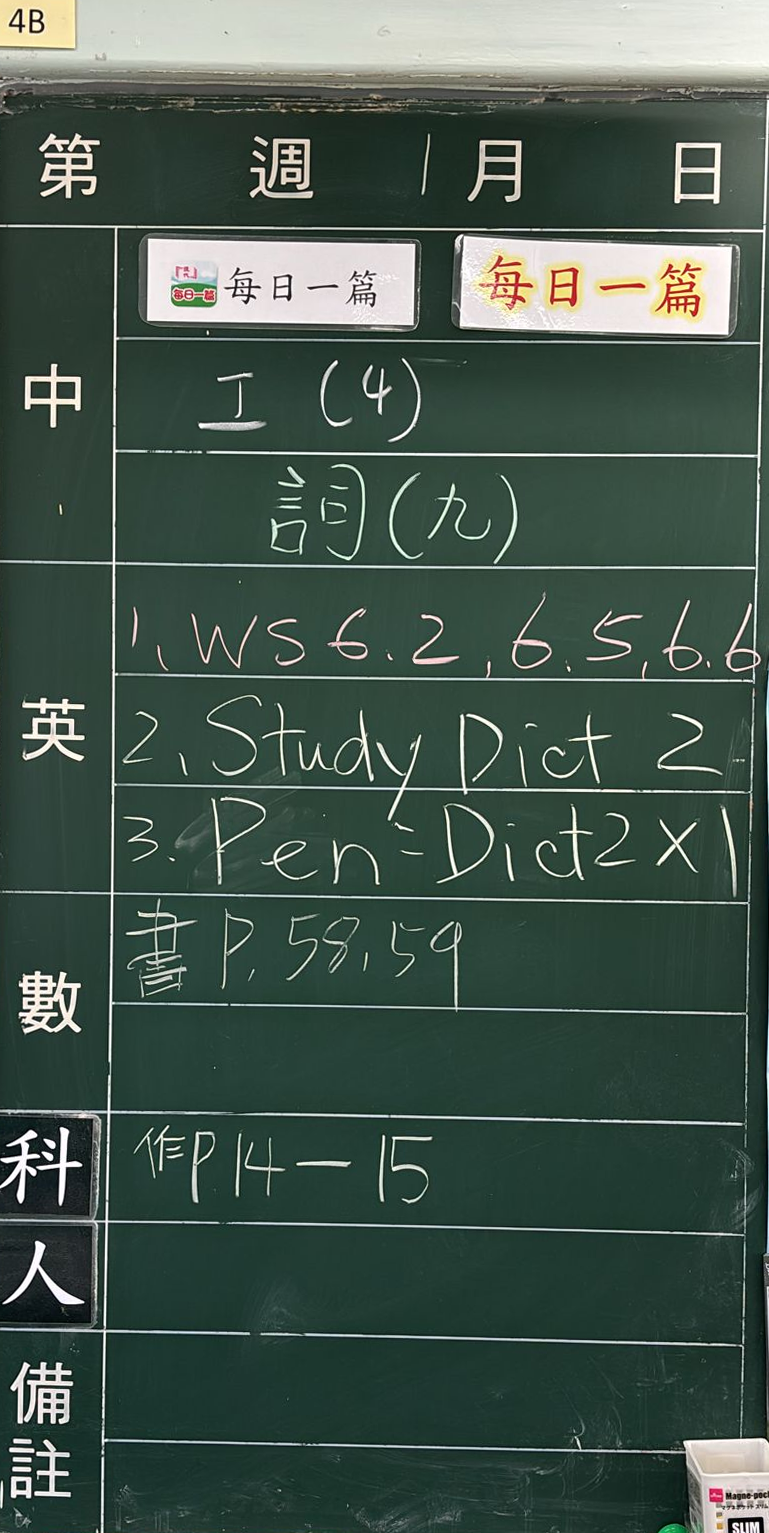 4B
第 週 1月 日
每日一篇 每日一篇 每日一篇
中
工 (4)
詞(九)
英
1、WS 6.2, 6.5, 6.6
2、Study Dict 2
3. Pen=Dict2×1
數
書P. 58, 59
科
作P.14-15
人
備註
Magne-pock
SLIM